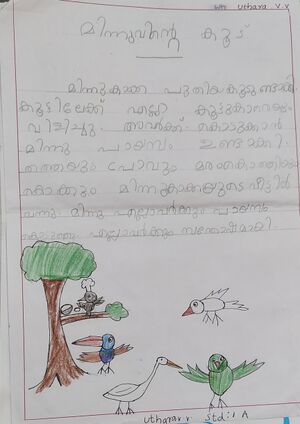 Uthara v.v
മിന്നുവിന്റെ കൂട്
മിന്നുകാക്ക പുതിയകൂടുണ്ടാക്കി
കൂട്ടിലേക്ക് എല്ലാ കൂട്ടുകാരെയും
വിളിച്ചു. അവർക്ക് കൊടുക്കാൻ
മിന്നു പായസം ഉണ്ടാക്കി.
തത്തയും പ്രാവും മരംകൊത്തിയും
കൊക്കും മിന്നുകാക്കയുടെ വീട്ടിൽ
വന്നു. മിന്നു എല്ലാവർക്കും പായസം
കൊടുത്തു. എല്ലാവർക്കും സന്തോഷമായി.
Uthara v.v. Std:1 A